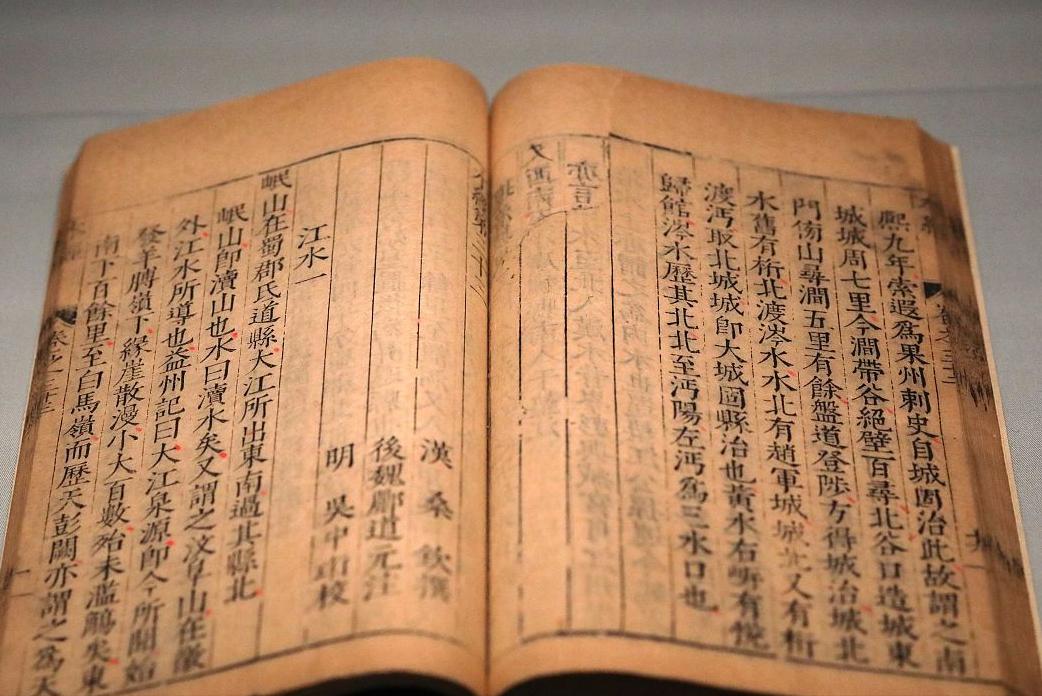 熈九年索遐爲果州刺史自城固治此故謂之南
城城周七里今澗帶谷絕壁百尋北谷口造城東
門傍山尋澗五里有餘盤道登陟方得城治城北
水舊有桁北渡涔水水北有趙軍城城北又有桁
渡沔取北城城卽大城固縣治也黃水右岸有悅
歸館涔水歷其北北至沔陽左沔爲三水口也
漢桑欽撰
後魏酈道元注
明吳中珩校
江水一
岷山在蜀郡氐道縣大江所出東南過其縣北
岷山卽瀆山也水曰瀆水矣又謂之汶阜山在徼
外江水所導也益州記曰大江泉源卽今所聞始
發羊膊嶺下緣崖散漫小大百數殆未濫觴矣東
南下百餘里至白馬嶺而歷天彭闕亦謂之爲天